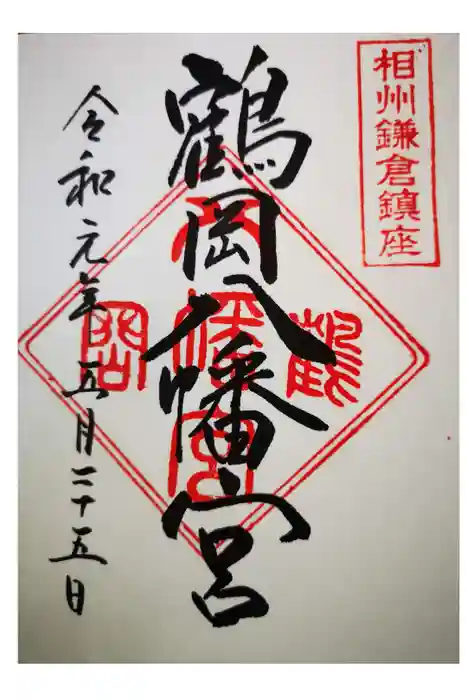 相州鎌倉鎮座
鶴岡八幡宮
鶴
八幡宮
岡
令和元年五月二十五日